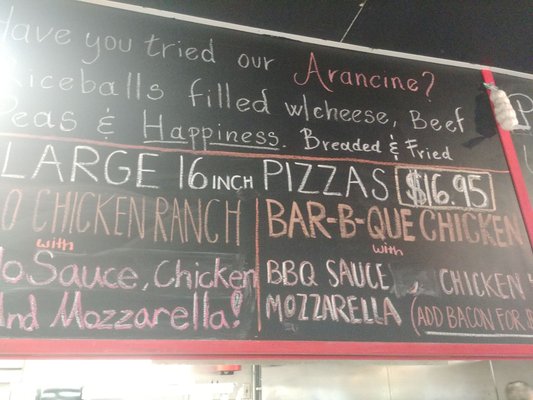 ave you tried our Arancine?
iceballs filled w/cheese, Beef
Peas & Happiness. Breaded & Fried
LARGE 16 INCH PIZZAS $16.95
O CHICKEN RANCH
with
lo Sauce, Chicken
And Mozzarella!
BAR-B-QUE CHICKEN
with
BBQ SAUCE, CHICKEN
MOZZARELLA (ADD BACON FOR $